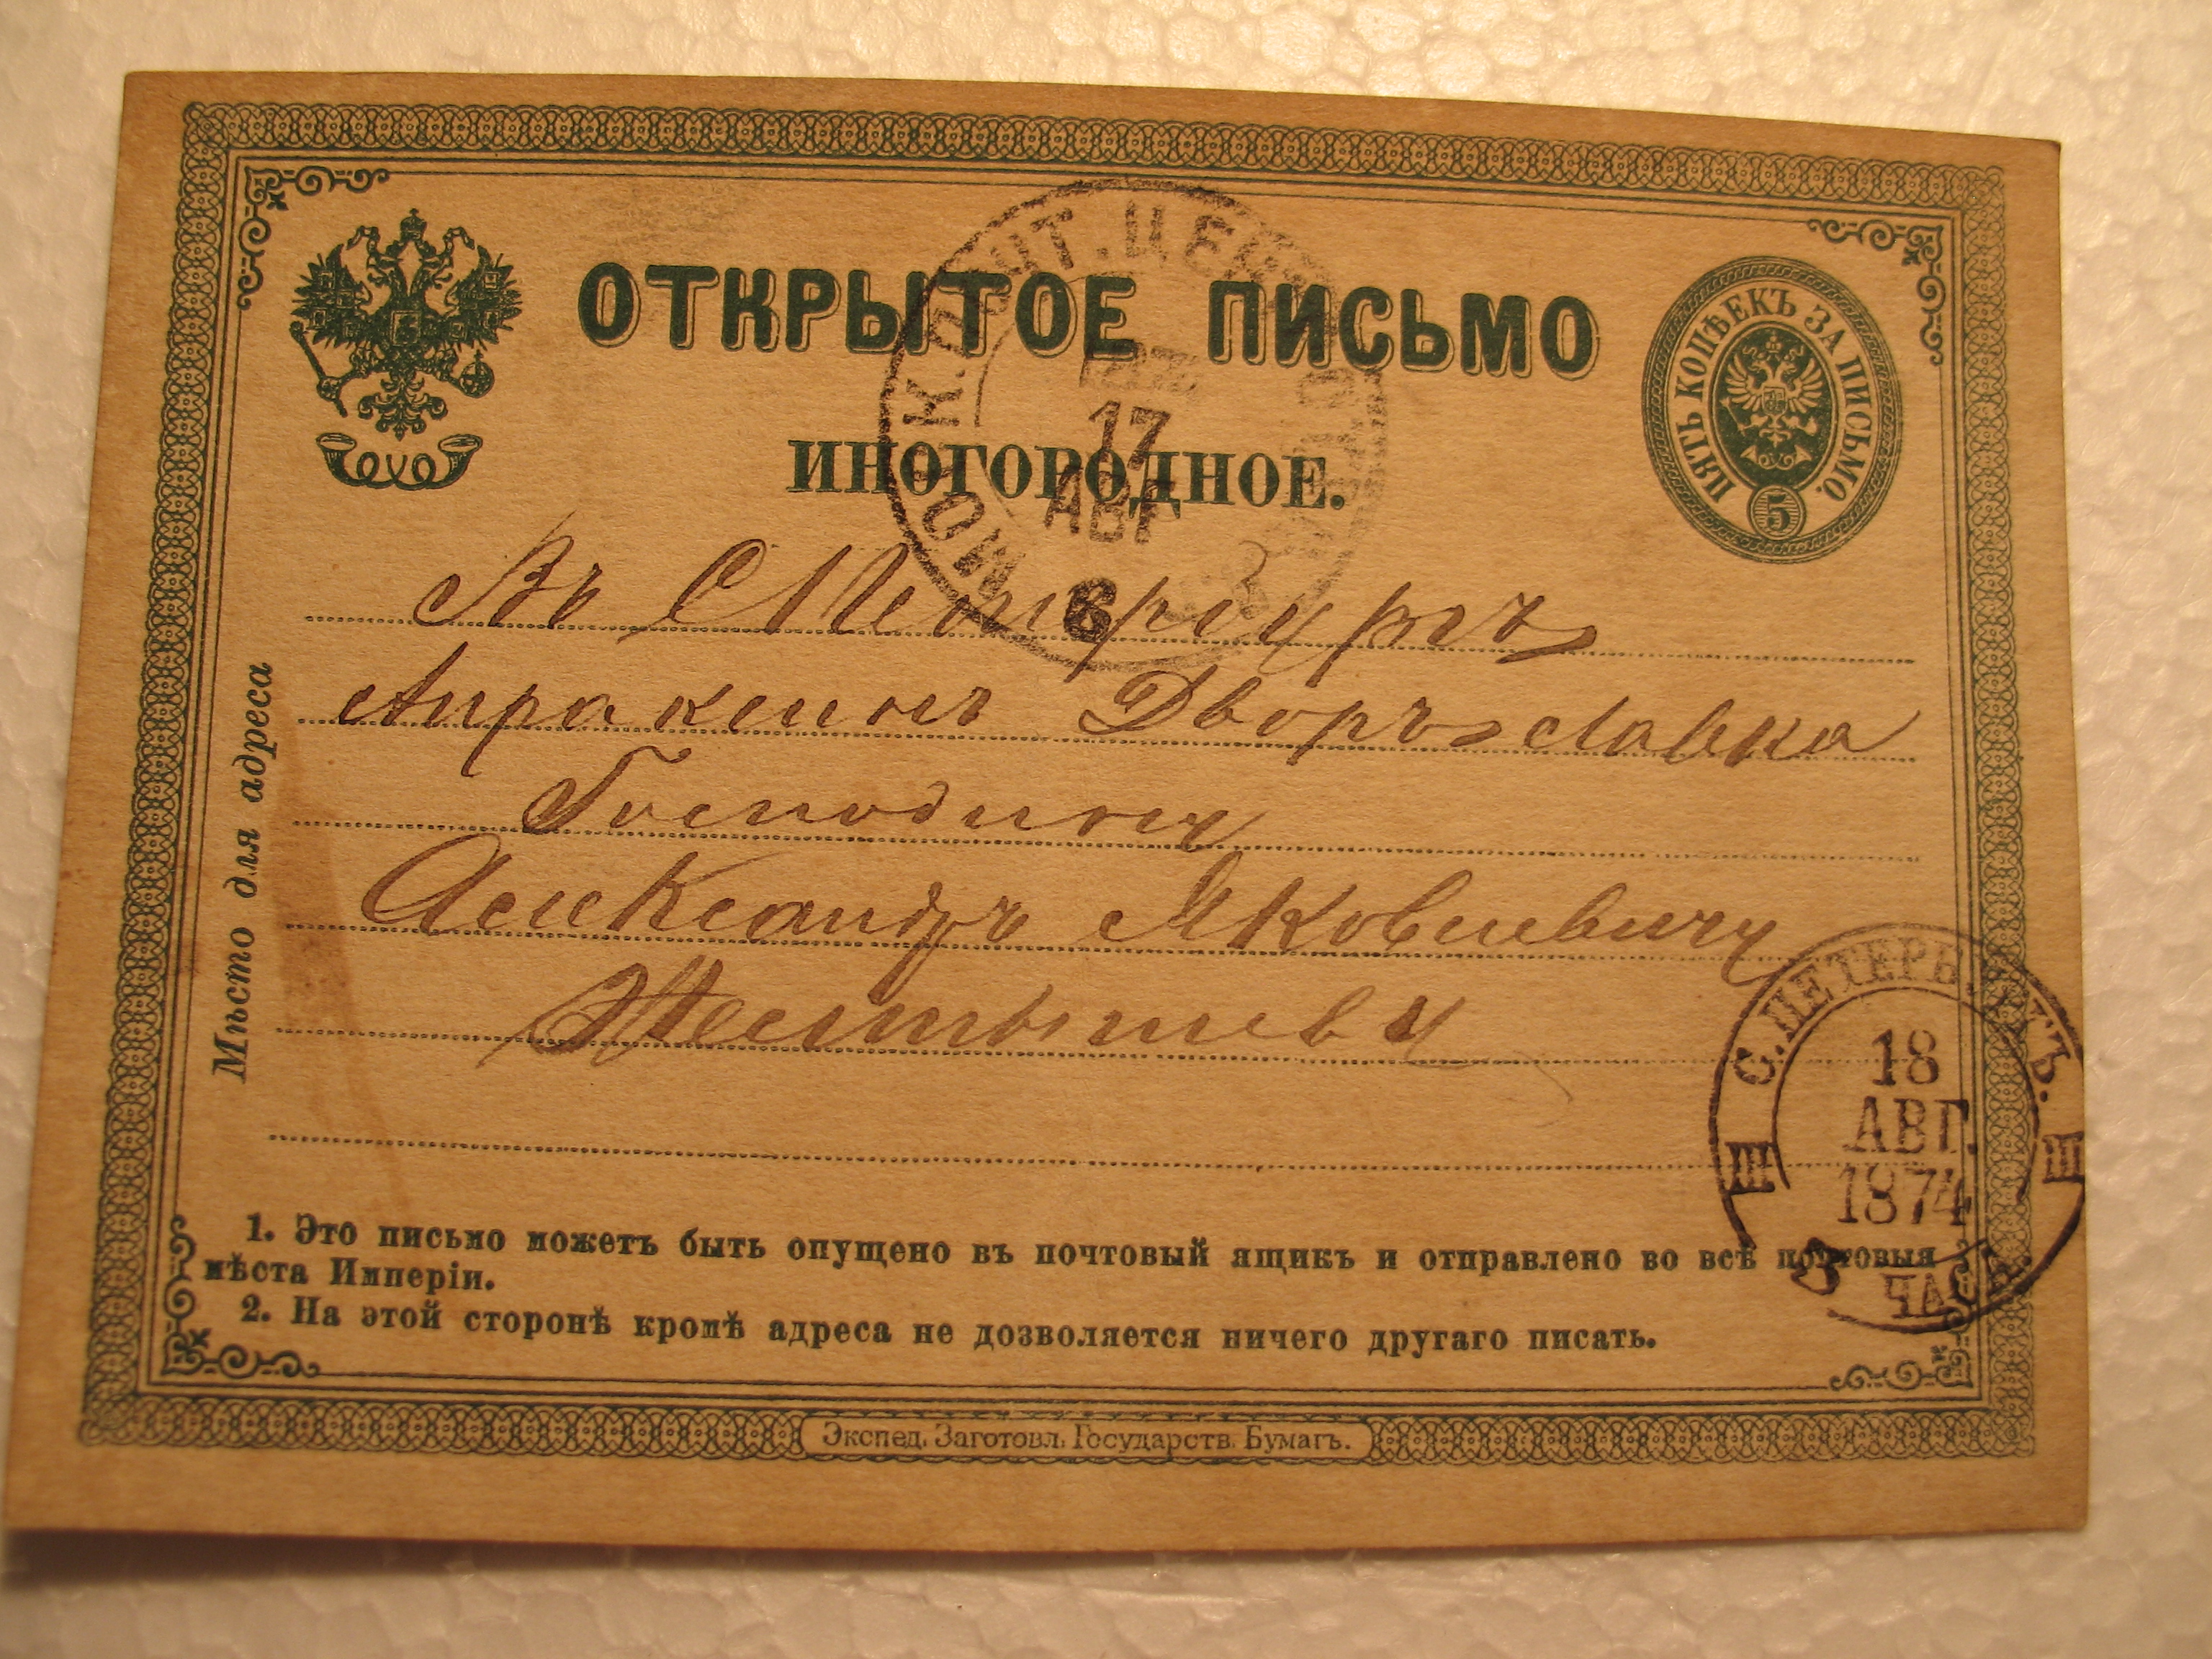 ОТКРЫТОЕ ПИСЬМО
ПЯТЬ КОПѢЕКЪ ЗА ПИСЬМО.
5
ИНОГОРОДНОЕ.
17
АВГ
6
Въ СПетербургъ
Апраксинъ Дворъ Лавка
Господину
Александръ Яковлевичу
Мѣсто для адреса
С.ПЕТЕРБ
18
АВГ.
1874
III III
ЧАС
1. Это письмо можетъ быть опущено въ почтовый ящикъ и отправлено во всѣ почтовыя
мѣста Имперіи.
2. На этой сторонѣ кромѣ адреса не дозволяется ничего другаго писать.
Экспед. Заготовл. Государств. Бумагъ.